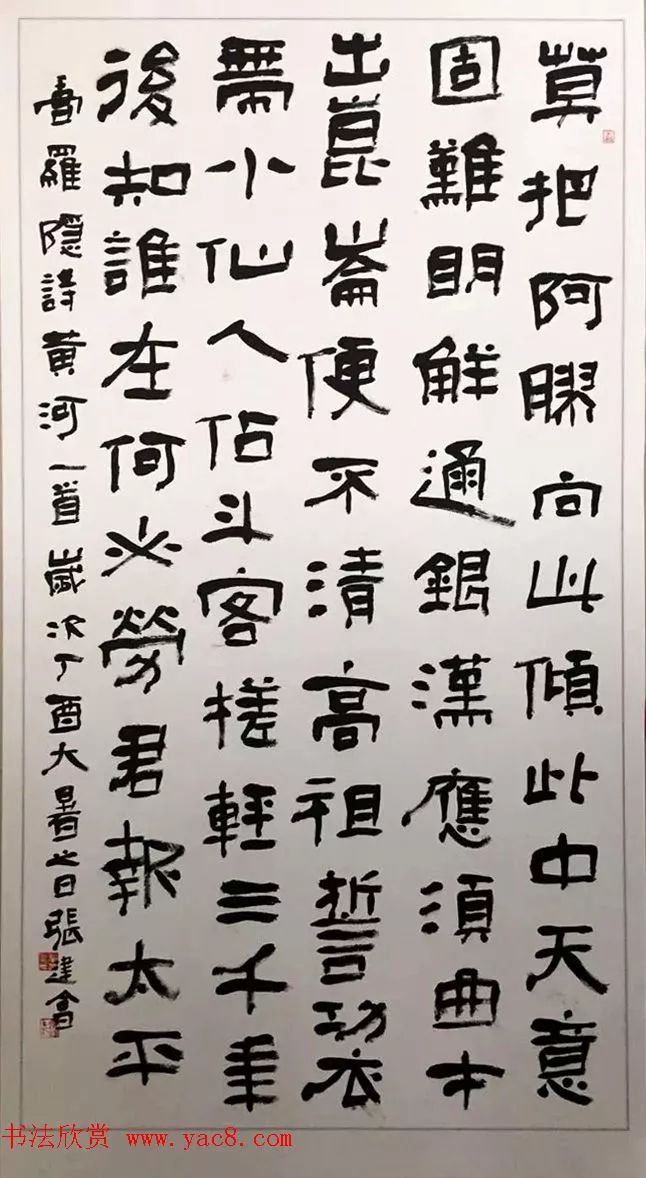 莫把阿膠向此傾此中天意
固難明解通銀漢應須曲才
出崑崙便不清高祖誓功衣
帶小仙人佔斗客槎輕三千年
後知誰在何必勞君報太平
書羅隱詩黃河一首歲次丁酉大暑之日張建會
书法欣赏 www.yac8.com